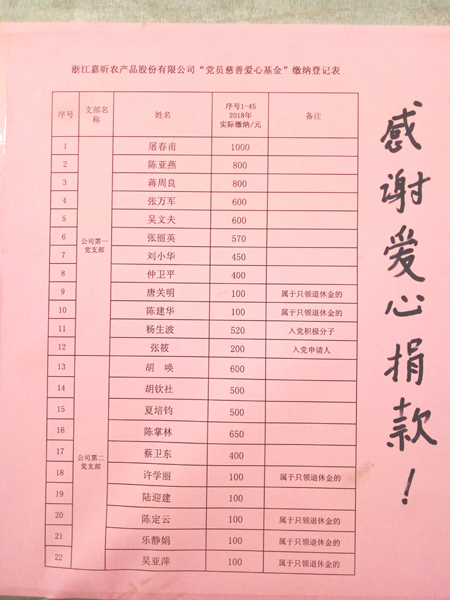 浙江嘉昕农产品股份有限公司“党员慈善爱心基金”缴纳登记表
序号 支部名称 姓名 序号1-45 2018年 实际缴纳/元 备注
公司第一党支部
1 屠春南 1000
2 陈亚燕 800
3 蒋周良 800
4 张万军 600
5 吴文夫 600
6 张丽英 570
7 刘小华 450
8 仲卫平 400
9 唐关明 100 属于只领退休金的
10 陈建华 100 属于只领退休金的
11 杨生波 520 入党积极分子
12 张筱 200 入党申请人
公司第二党支部
13 胡 唤 600
14 胡钦社 500
15 夏培钧 500
16 陈掌林 650
17 蔡卫东 400
18 许学丽 100 属于只领退休金的
19 陆迎建 100
20 陈定云 100 属于只领退休金的
21 乐静娟 100 属于只领退休金的
22 吴亚萍 100 属于只领退休金的
感谢爱心捐款！